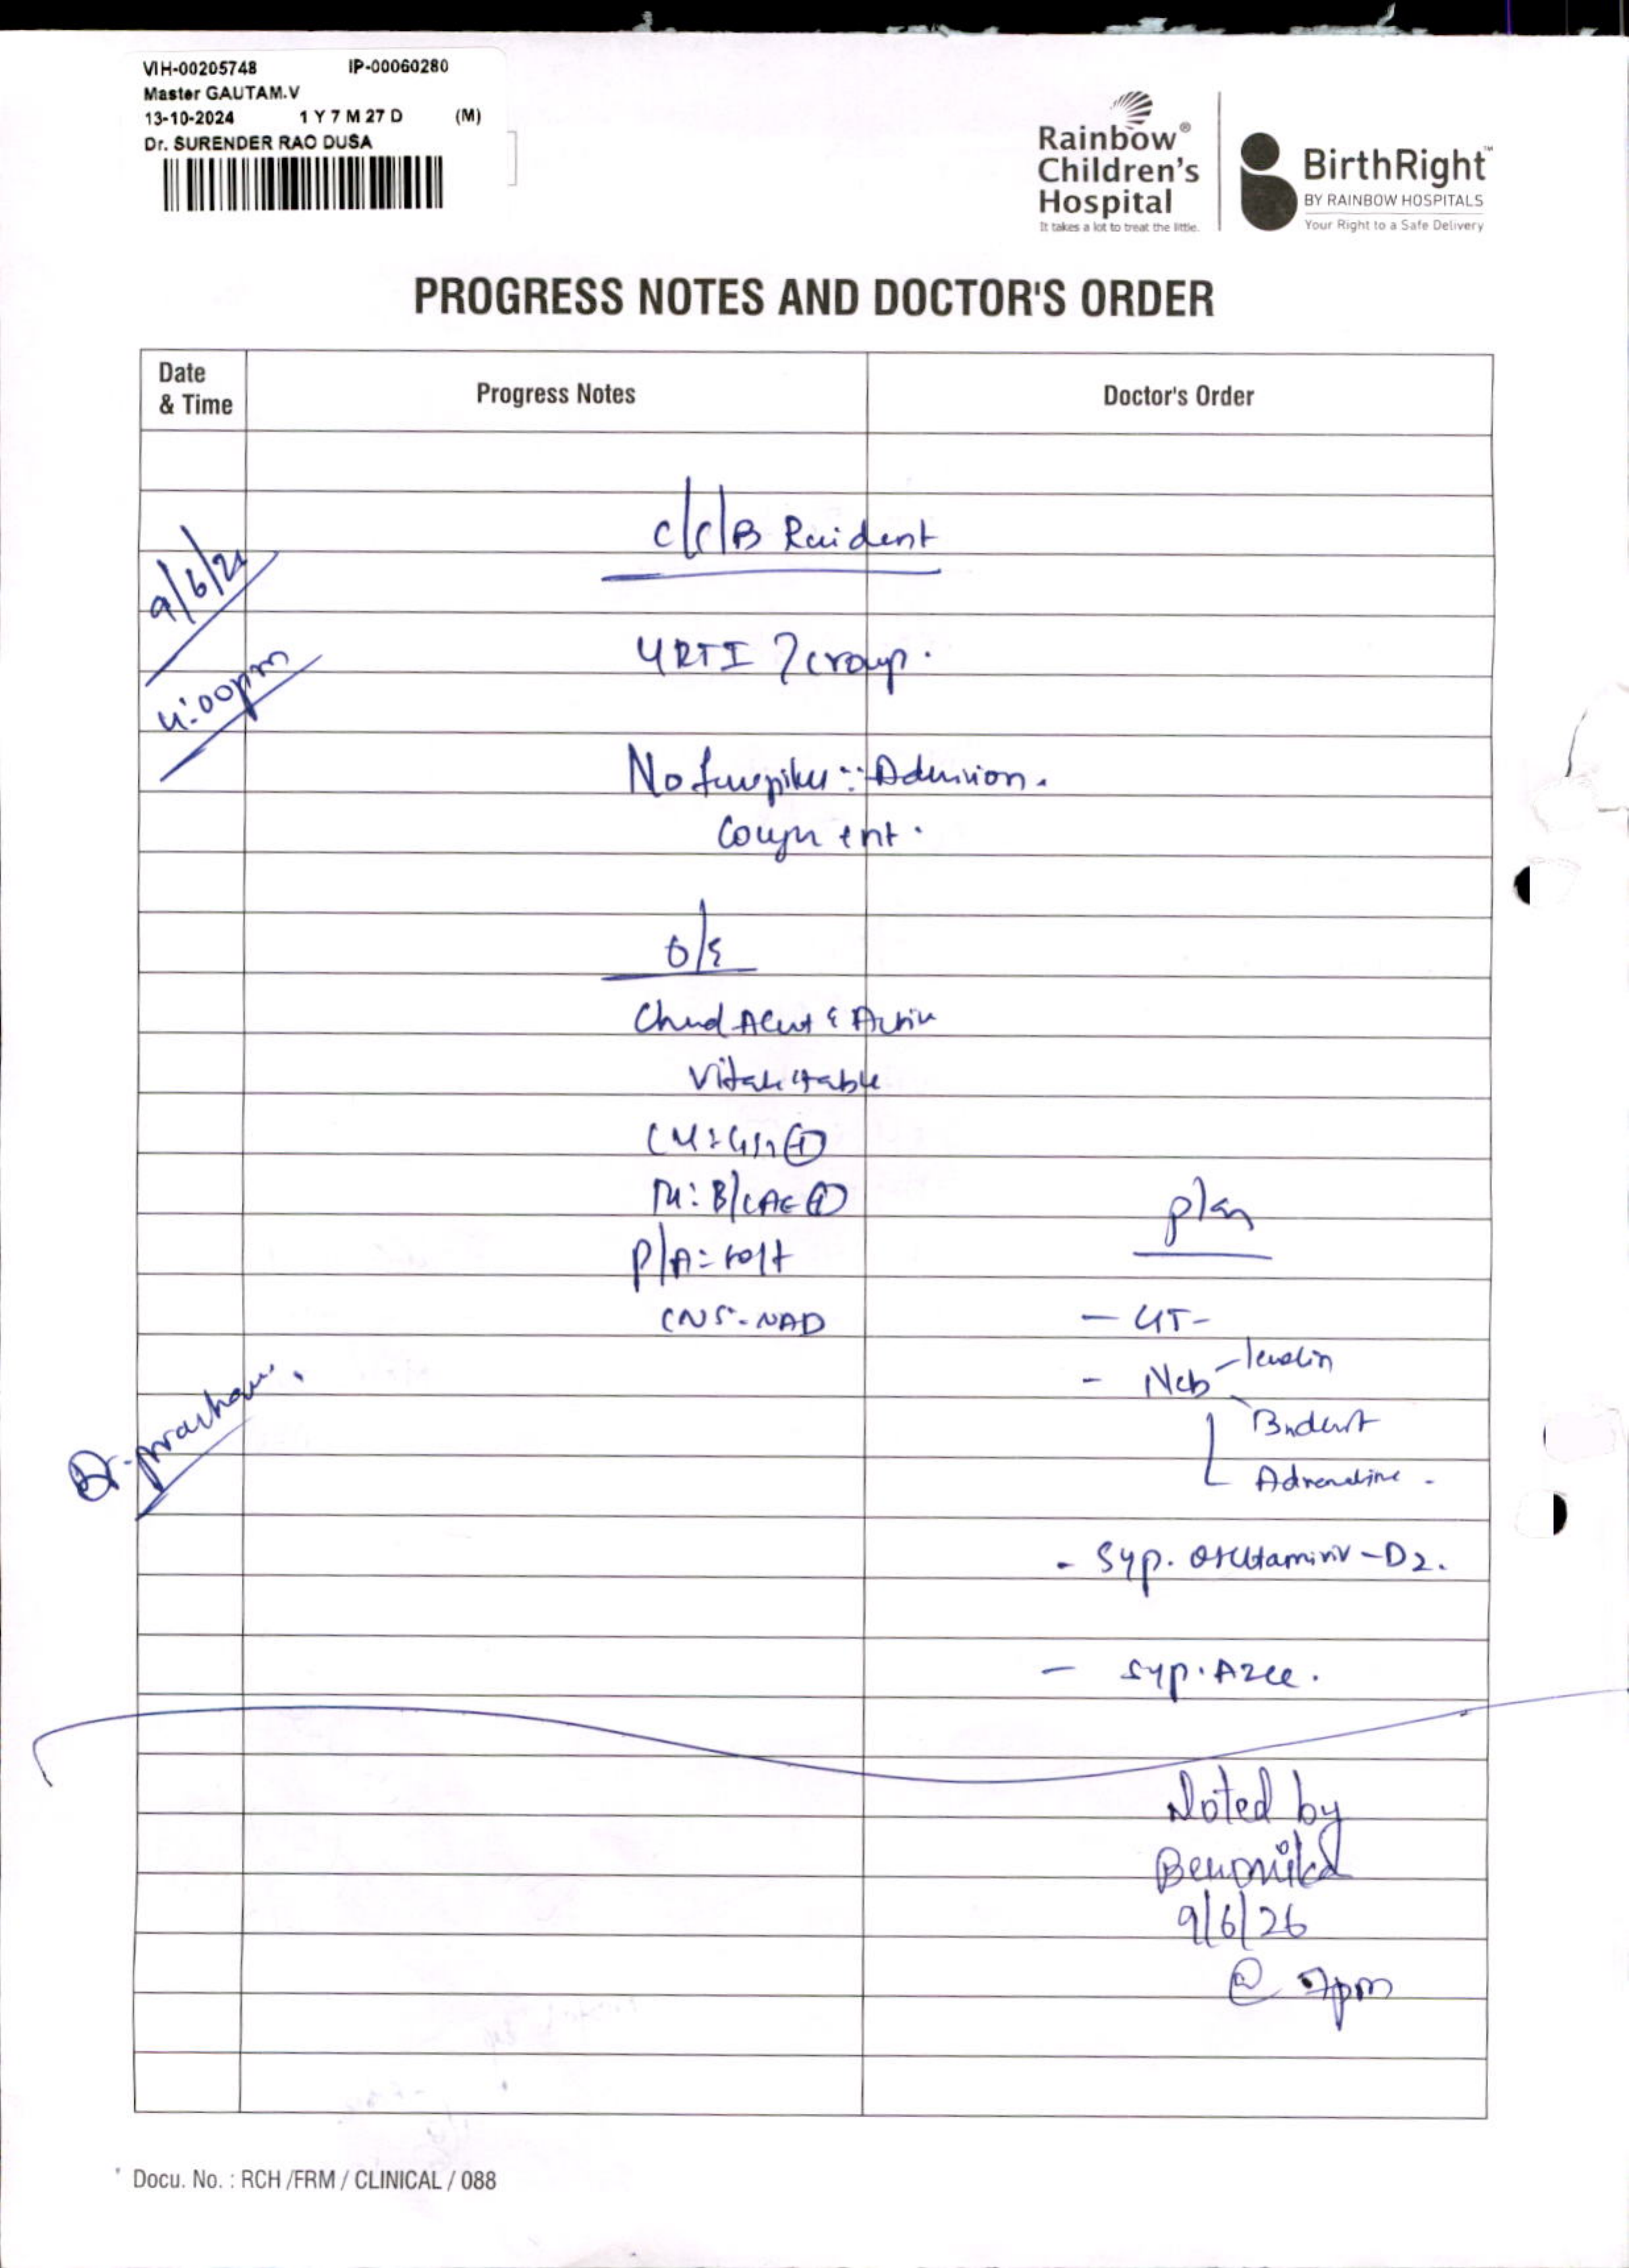 VIH-00205748 IP-00060280
Master GAUTAM.V
13-10-2024 1 Y 7 M 27 D (M)
Dr. SURENDER RAO DUSA
Rainbow®
Children's
Hospital
It takes a lot to treat the little.
BirthRight™
BY RAINBOW HOSPITALS
Your Right to a Safe Delivery
PROGRESS NOTES AND DOCTOR'S ORDER
Date
& Time
Progress Notes
Doctor's Order
9/6/26
4:00pm
C/C/B Resident
URTI ? croup.
No fever spikes :: Admission.
Cough
O/E
Child Alert & Active
Vitals stable
P/A: soft
CNS - NAD
Dr.
plan
- Neb
Budecort
Adrenaline -
- Syp. Oseltamivir - D2.
- Syp. Azee.
Noted by
9/6/26
@ 7pm
Docu. No. : RCH /FRM / CLINICAL / 088